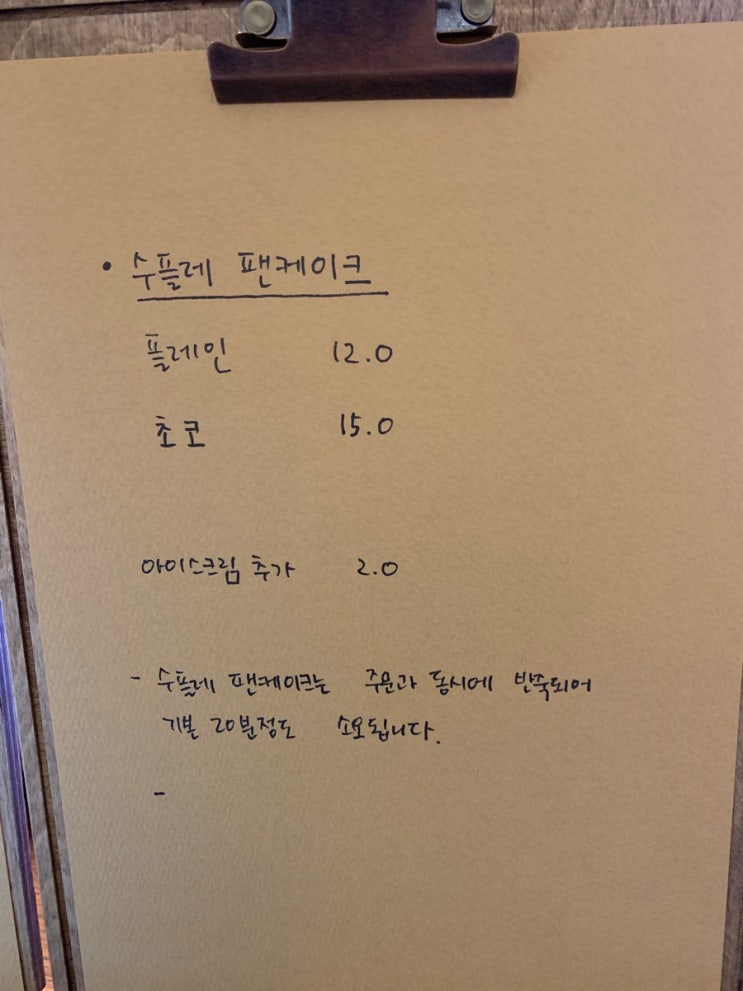 • 수플레 팬케이크
플레인 12.0
초코 15.0
아이스크림 추가 2.0
- 수플레 팬케이크는 주문과 동시에 반죽되어
기본 20분정도 소요됩니다.
-